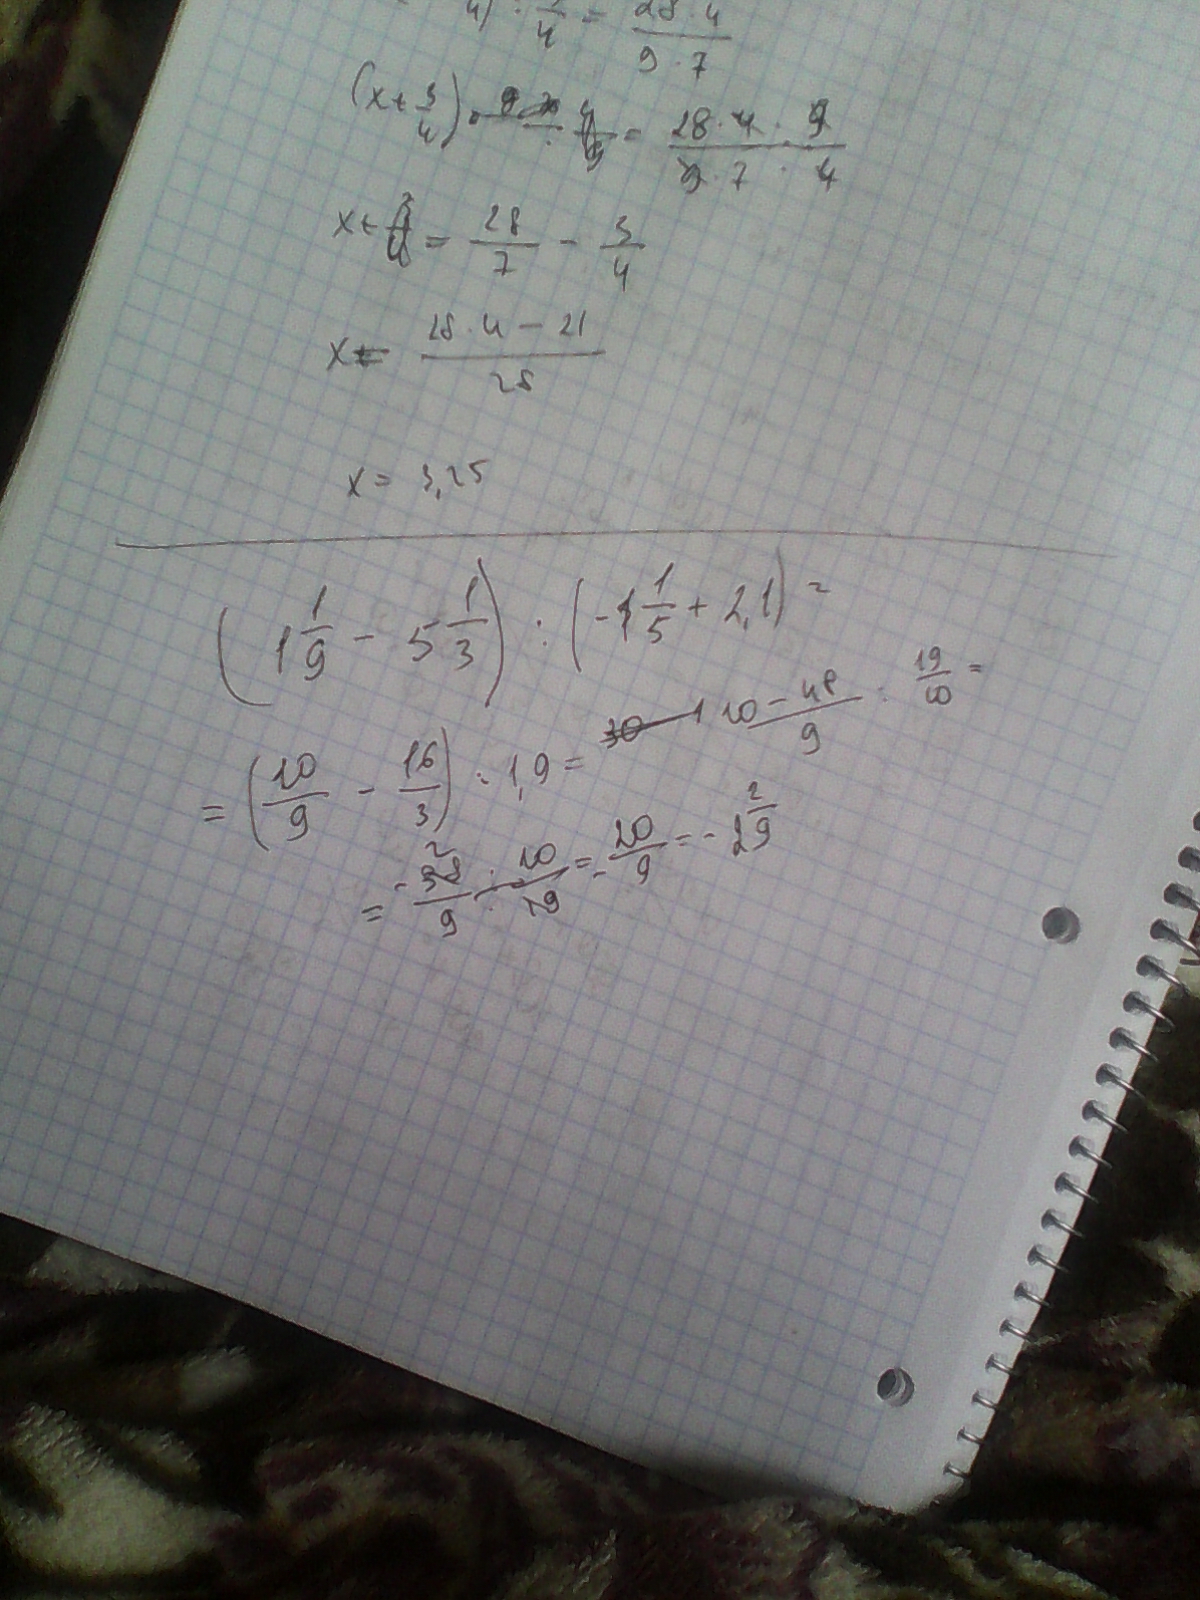 4) : 7/4 = 28 · 4 / 9 · 7
(x + 3/4) · 4/9 = 28 · 4 · 9 / 9 · 7 · 4
x + 3/4 = 28/7 - 3/4
x = 28 · 4 - 21 / 28
x = 3,25
(1 1/9 - 5 1/3) : (-1 1/5 + 2,1) =
= (10/9 - 16/3) : 1,9 = 10 - 48 / 9 : 19/10 =
= -38/9 · 10/19 = -20/9 = -2 2/9